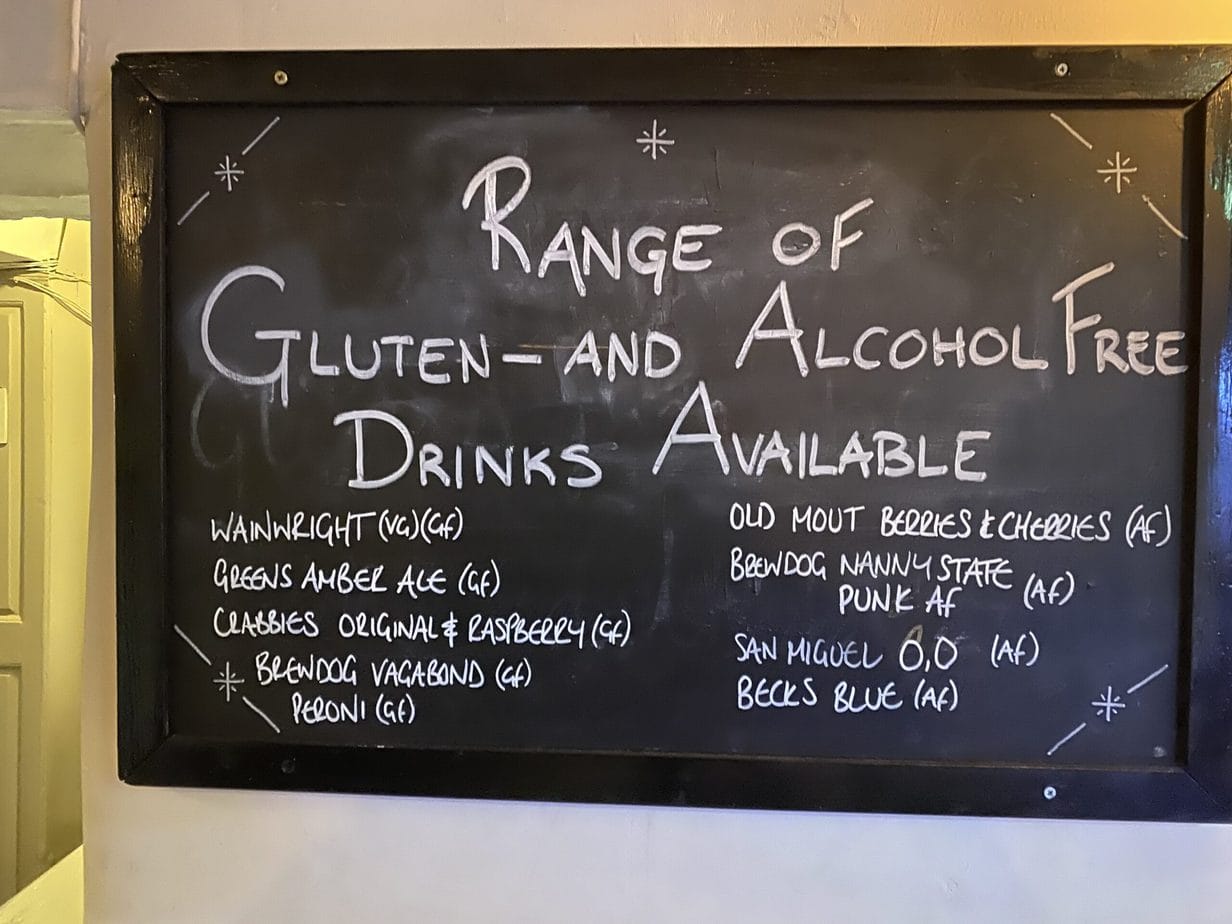 RANGE OF
GLUTEN - AND ALCOHOL FREE
DRINKS AVAILABLE
WAINWRIGHT (VG) (GF)
GREENS AMBER ALE (GF)
CRABBIES ORIGINAL & RASPBERRY (GF)
BREWDOG VAGABOND (GF)
PERONI (GF)
OLD MOUT BERRIES & CHERRIES (AF)
BREWDOG NANNY STATE
PUNK AF (AF)
SAN MIGUEL 0,0 (AF)
BECKS BLUE (AF)